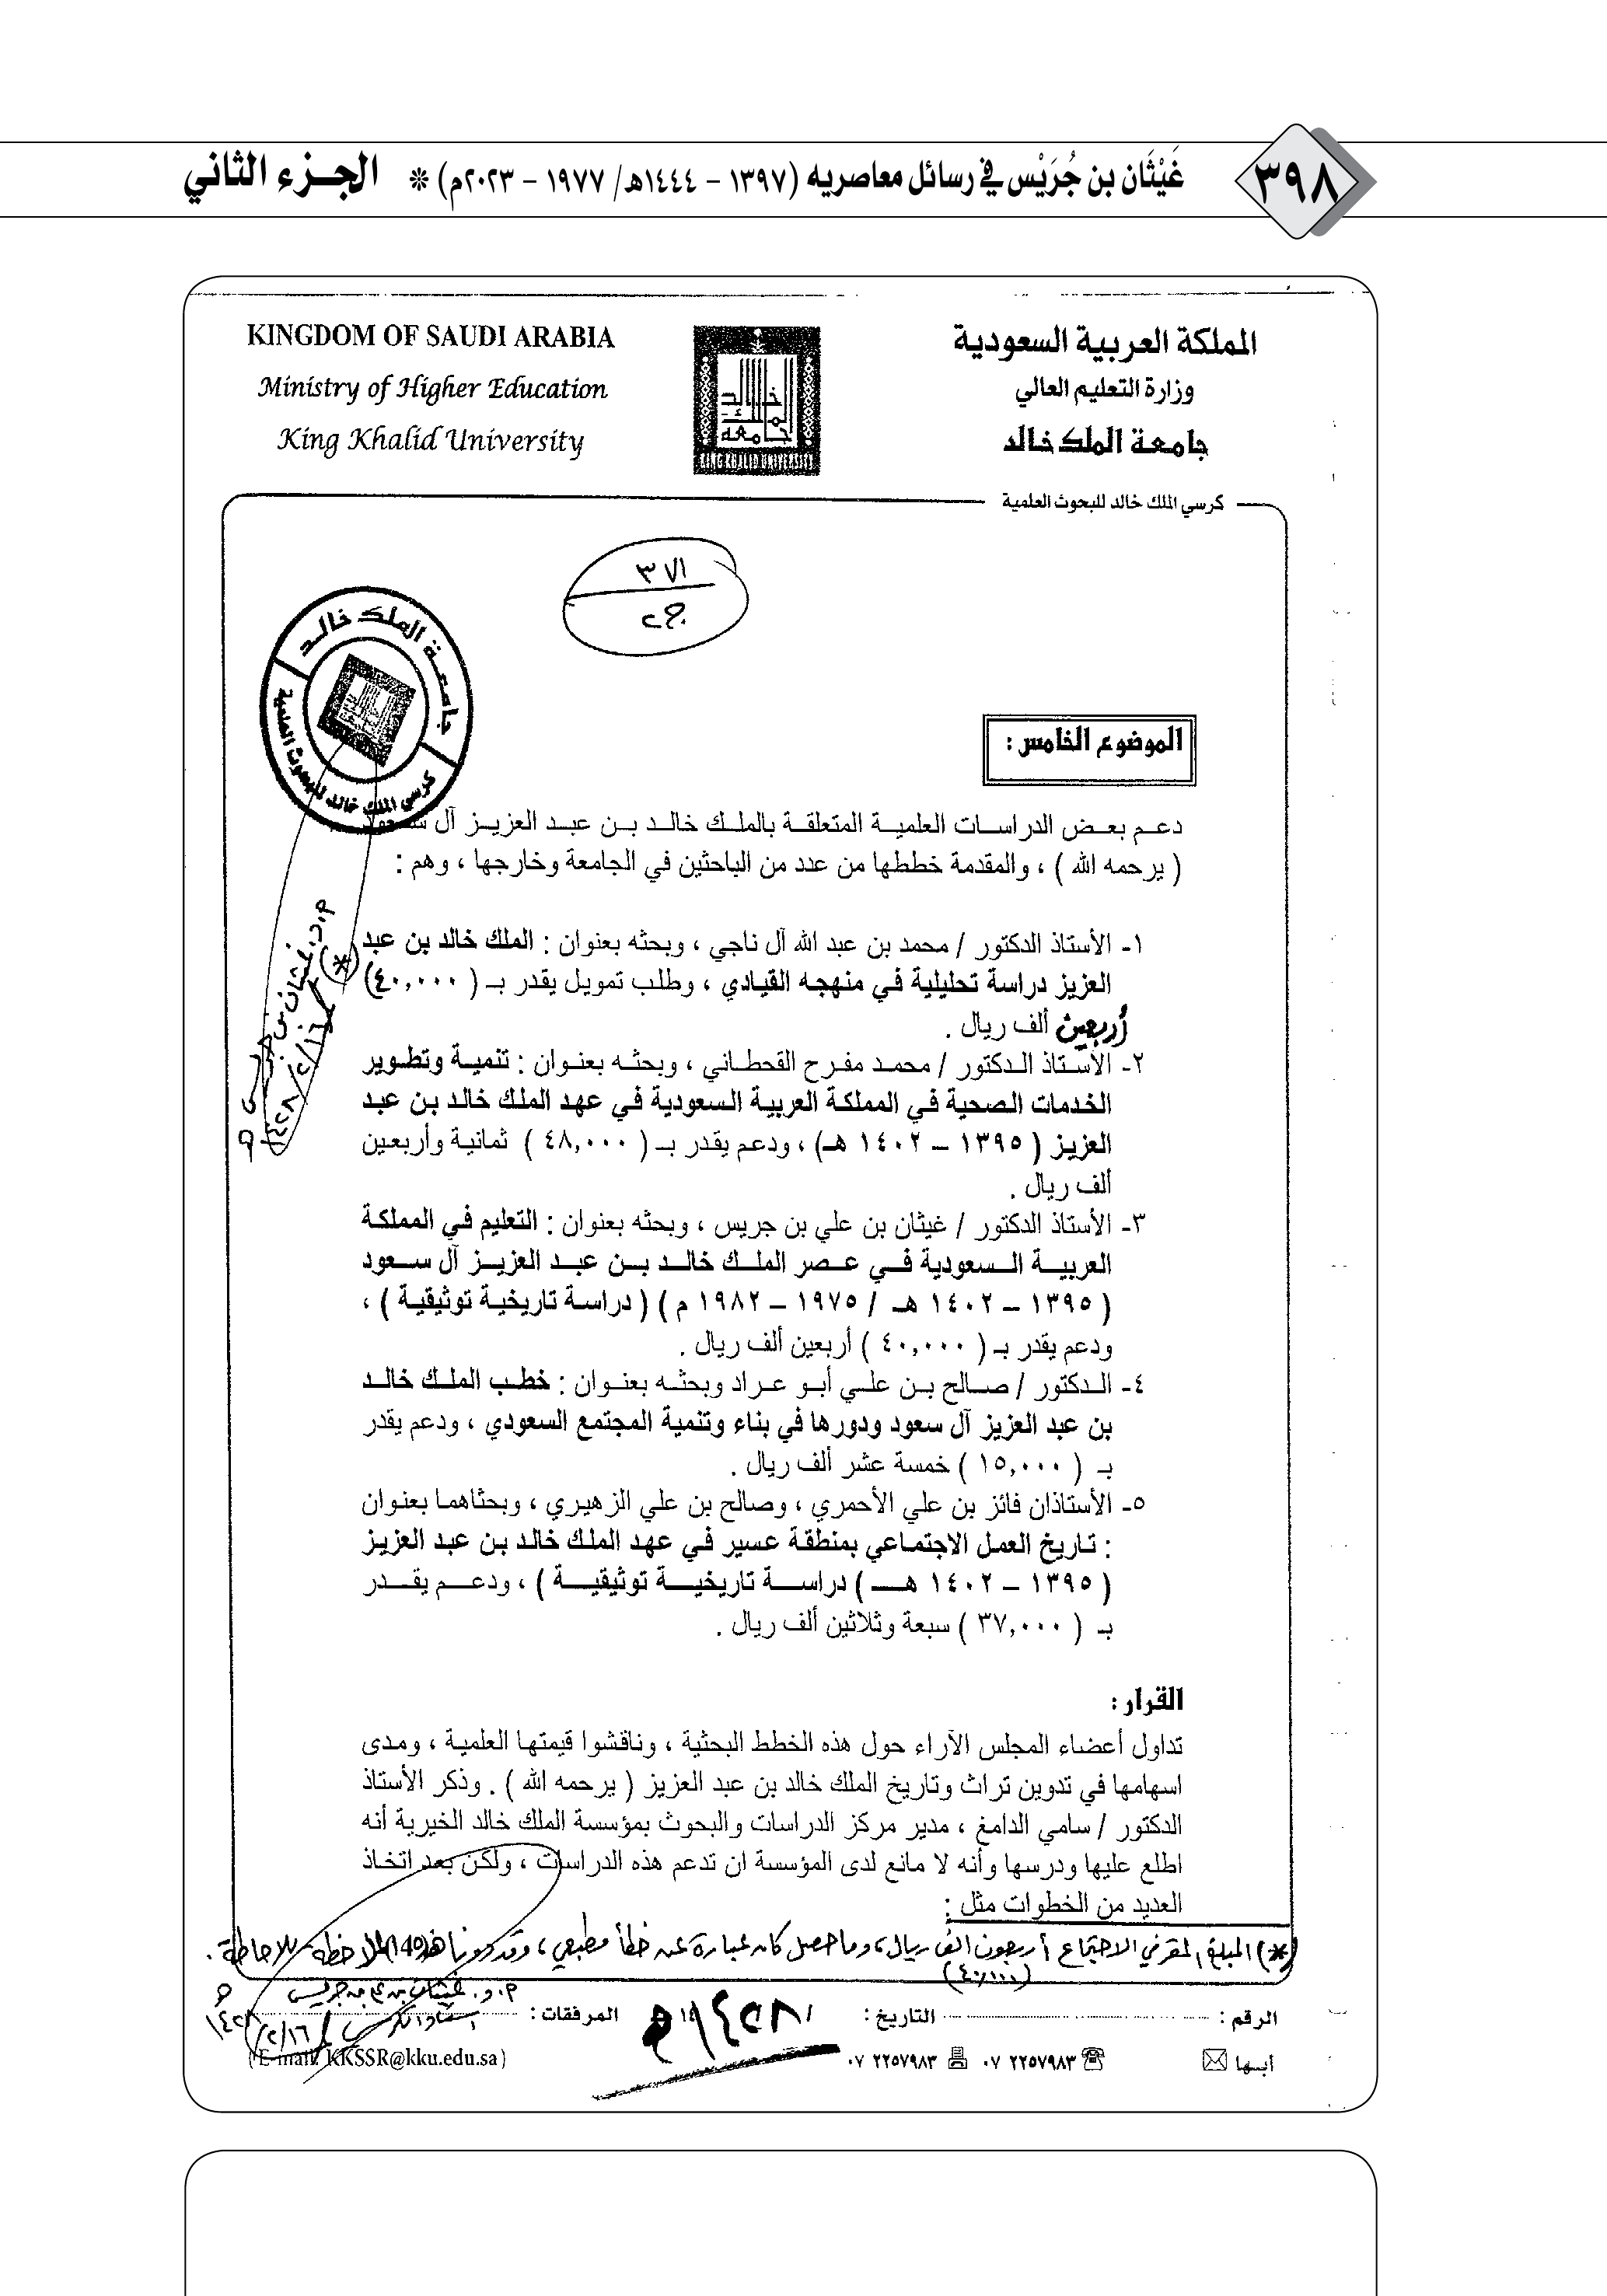 ٣٩٨
غَيْثَان بن جُرَيْس في رسائل معاصريه (١٣٩٧ – ١٤٤٤هـ/ ١٩٧٧ – ٢٠٢٣م) * الجـزء الثاني
المملكة العربية السعودية
وزارة التعليم العالي
جامعة الملك خالد
KINGDOM OF SAUDI ARABIA
Ministry of Higher Education
King Khalid University
جامعة الملك خالد
KING KHALID UNIVERSITY
كرسي الملك خالد للبحوث العلمية
جامعة الملك خالد
كرسي الملك خالد للبحوث العلمية
الموضوع الخامس :
دعم بعض الدراسات العلمية المتعلقة بالملك خالد بن عبد العزيز آل سعود
( يرحمه الله ) ، والمقدمة خططها من عدد من الباحثين في الجامعة وخارجها ، وهم :
١- الأستاذ الدكتور / محمد بن عبد الله آل ناجي ، وبحثه بعنوان : الملك خالد بن عبد
العزيز دراسة تحليلية في منهجه القيادي ، وطلب تمويل يقدر بـ ( ٤٠,٠٠٠)
أربعين ألف ريال .
(*)
٢- الأستاذ الدكتور / محمد مفرح القحطاني ، وبحثه بعنوان : تنمية وتطوير
الخدمات الصحية في المملكة العربية السعودية في عهد الملك خالد بن عبد
العزيز ( ١٣٩٥ – ١٤٠٢ هـ) ، ودعم يقدر بـ ( ٤٨,٠٠٠ ) ثمانية وأربعين
ألف ريال .
٣- الأستاذ الدكتور / غيثان بن علي بن جريس ، وبحثه بعنوان : التعليم في المملكة
العربية السعودية في عصر الملك خالد بن عبد العزيز آل سعود
( ١٣٩٥ – ١٤٠٢ هـ / ١٩٧٥ – ١٩٨٢ م ) ( دراسة تاريخية توثيقية ) ،
ودعم يقدر بـ ( ٤٠,٠٠٠ ) أربعين ألف ريال .
٤- الدكتور / صالح بن علي أبو عراد وبحثه بعنوان : خطب الملك خالد
بن عبد العزيز آل سعود ودورها في بناء وتنمية المجتمع السعودي ، ودعم يقدر
بـ ( ١٥,٠٠٠ ) خمسة عشر ألف ريال .
٥- الأستاذان فائز بن علي الأحمري ، وصالح بن علي الزهيري ، وبحثاهما بعنوان
: تاريخ العمل الاجتماعي بمنطقة عسير في عهد الملك خالد بن عبد العزيز
( ١٣٩٥ – ١٤٠٢ هـ ) ( دراسة تاريخية توثيقية ) ، ودعم يقدر
بـ ( ٣٧,٠٠٠ ) سبعة وثلاثين ألف ريال .
القرار :
تداول أعضاء المجلس الآراء حول هذه الخطط البحثية ، وناقشوا قيمتها العلمية ، ومدى
اسهامها في تدوين تراث وتاريخ الملك خالد بن عبد العزيز ( يرحمه الله ) . وذكر الأستاذ
الدكتور / سامي الدامغ ، مدير مركز الدراسات والبحوث بمؤسسة الملك خالد الخيرية أنه
اطلع عليها ودرسها وأنه لا مانع لدى المؤسسة ان تدعم هذه الدراسات ، ولكن بعد اتخاذ
العديد من الخطوات مثل :
(*) المبلغ المقر في الاجتماع أربعون الف ريال ، وما حصل كان عبارة عن خطأ مطبعي ، وقد دونا هذه الملاحظة للاحاطة .
(٤٠,٠٠٠)
أ.د. غيثان بن علي بن جريس
١٤٢٨/٢/١٦ هـ
الرقم :
التاريخ :
المرفقات :
أبها
٠٧ ٢٢٥٧٩٨٣
٠٧ ٢٢٥٧٩٨٣
( E-mail: KKSSR@kku.edu.sa )